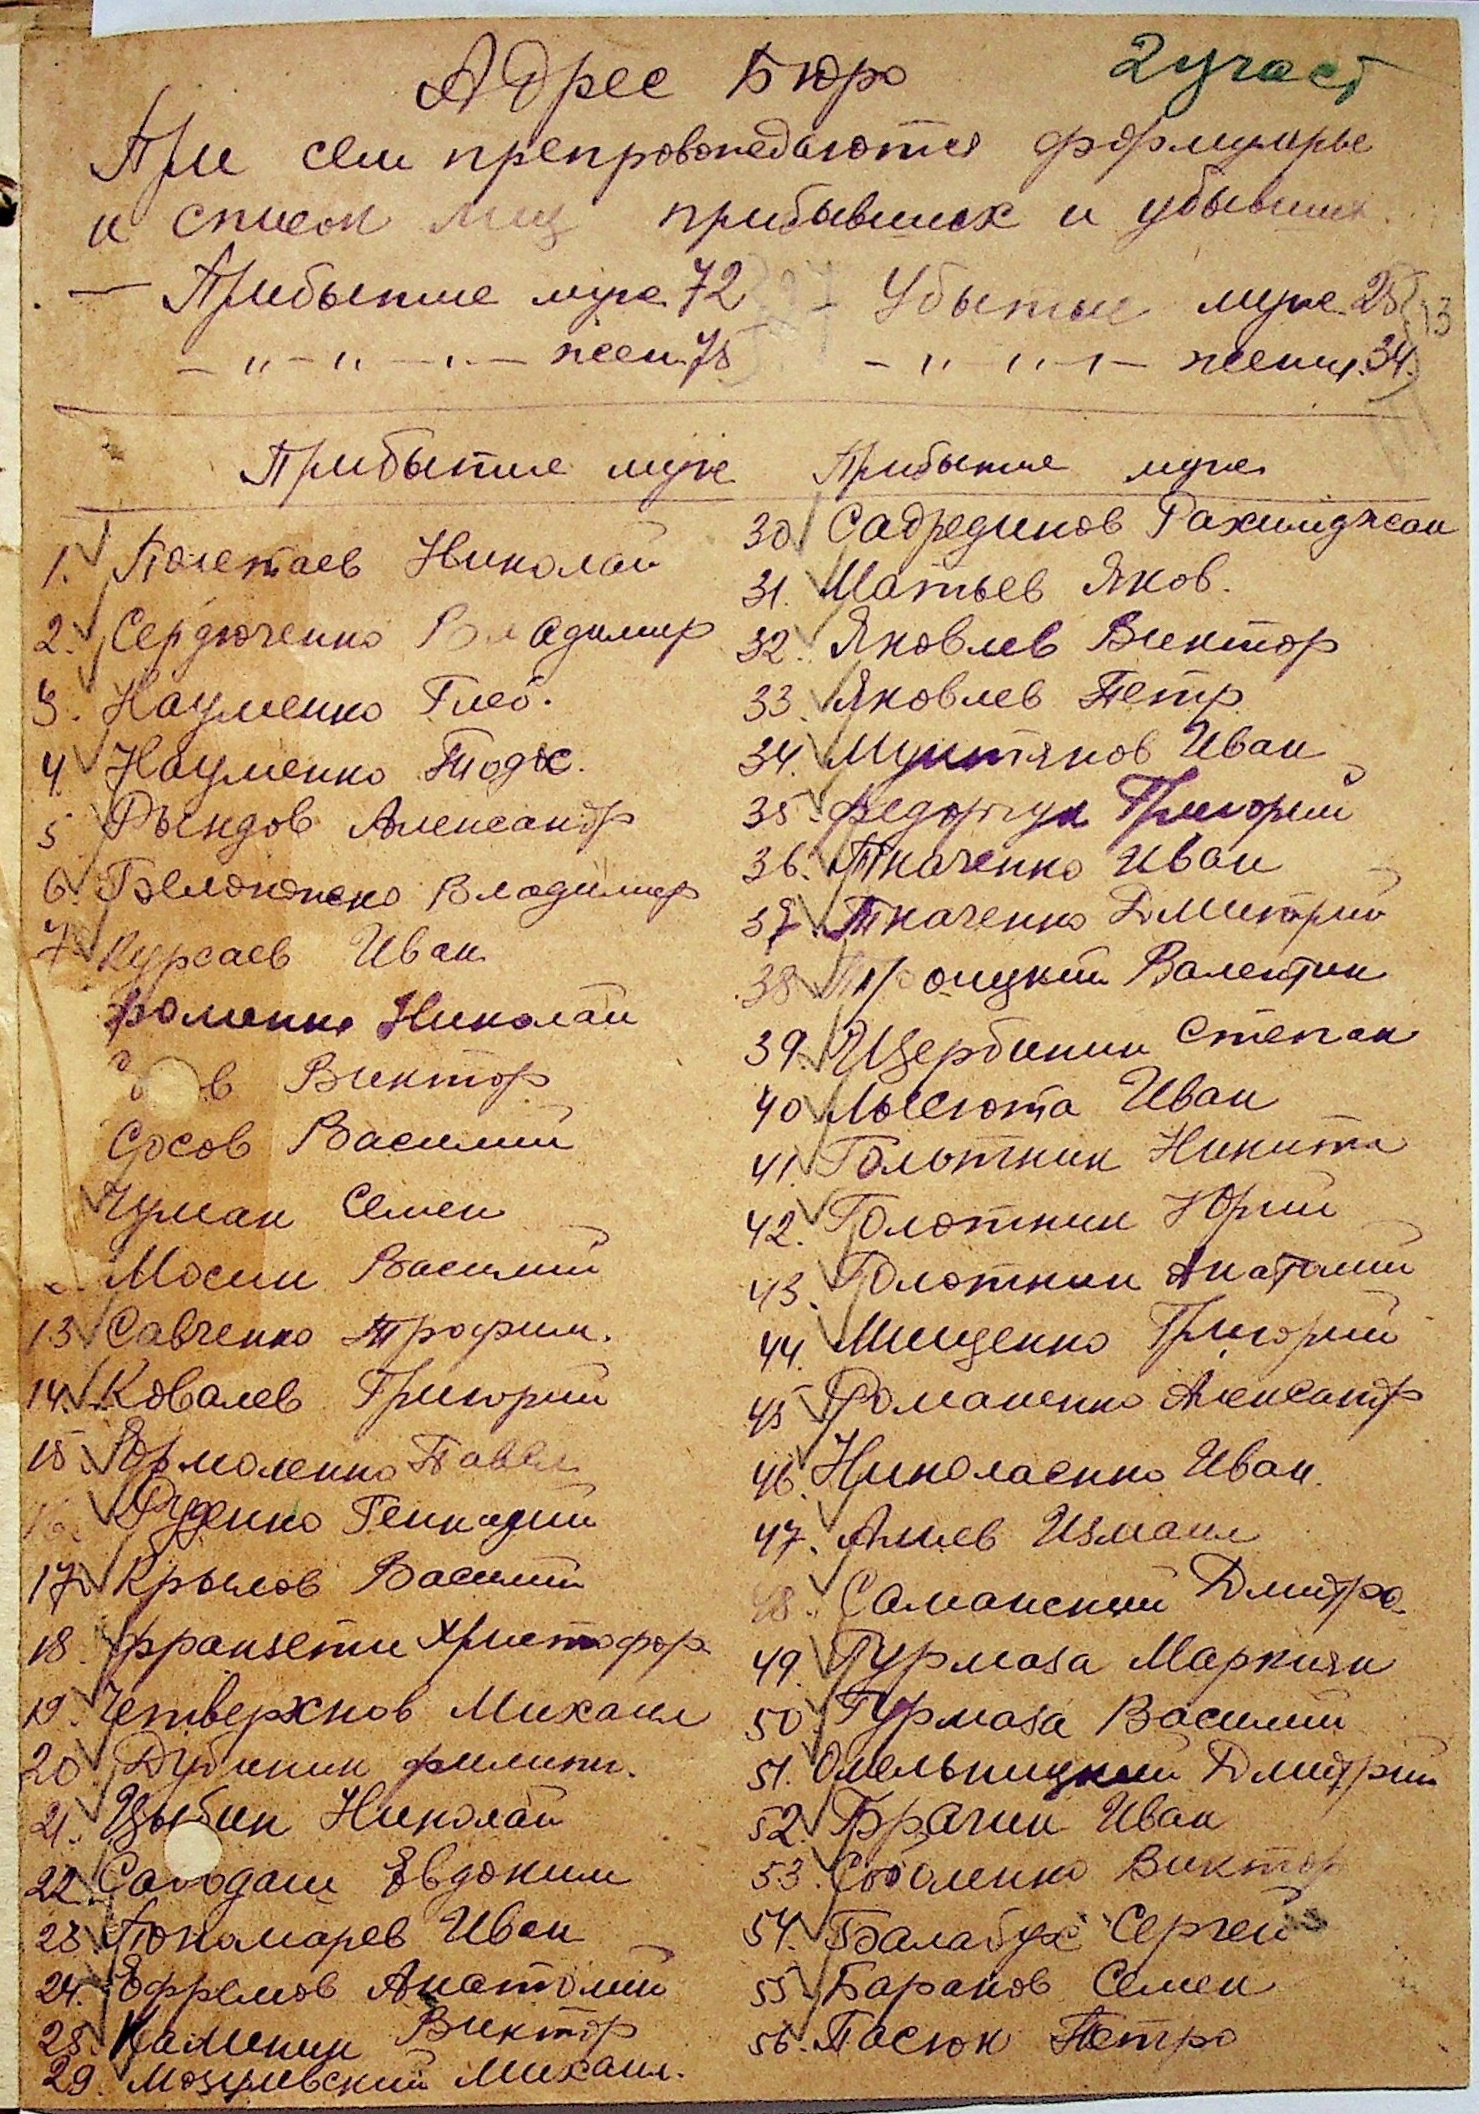 Адрес Бюро
2 участ
При сем препровождаются формуляры
и список лиц прибывших и убывших.
— Прибытие муж. 72
Убытые муж. 28
— " — " — " — женщ. 75
— " — " — " — женщ. 34.
Прибытие муж
1. Полетаев Николай
2. Сердюченко Владимир
3. Науменко Глеб.
4. Науменко Тодос.
5 Рындов Александр
6. Белоножко Владимир
7 Курсаев Иван
Фоменко Николай
в Виктор
Сосов Василий
Чуман Семен
Мосин Василий
13 Савченко Трофим.
14. Ковалев Григорий
15. Ермоленко Павел
16. Руденко Геннадий
17. Крылов Василий
18. Франзети Христофор
19. Четверхнов Михаил
20. Дубинин Филипп.
21. Цыбин Николай
22. Салодаш Евдоким
23 Пономарев Иван
24. Ефремов Анатолий
25. Каминин Виктор
29. Мозулевский Михаил.
Прибытие муж
30. Садрединов Рахимджан
31. Матьев Яков.
32. Яковлев Виктор
33. Яковлев Петр
34. Мунтянов Иван
35. Федорчук Григорий
36. Ткаченко Иван
37. Ткаченко Дмитрий
38. Троицкий Валентин
39. Щербинин Степан
40 Лысюта Иван
41. Голотнин Никита
42. Голотнин Юрий
43. Голотнин Анатолий
44. Мищенко Григорий
45 Романенко Александр
46. Николаенко Иван.
47. Алиев Измаил
48. Саманский Дмитро.
49. Гурмаза Маркиян
50. Гурмаза Василий
51. Омельницкий Дмитрий
52. Брагин Иван
53. Соболенко Виктор
54. Балабух Сергей
55 Баранов Семен
56. Пасюк Петро